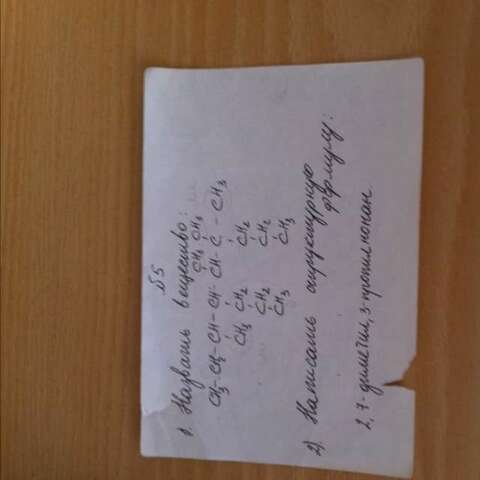 №5
1. Назвать вещество:
CH3 CH3
CH3-CH2-CH-CH-CH-C-CH3
CH3 CH2 CH2
CH2 CH2
CH3 CH3
2) Написать структурную
формулу:
2,7-диметил, 3-пропилнонан.